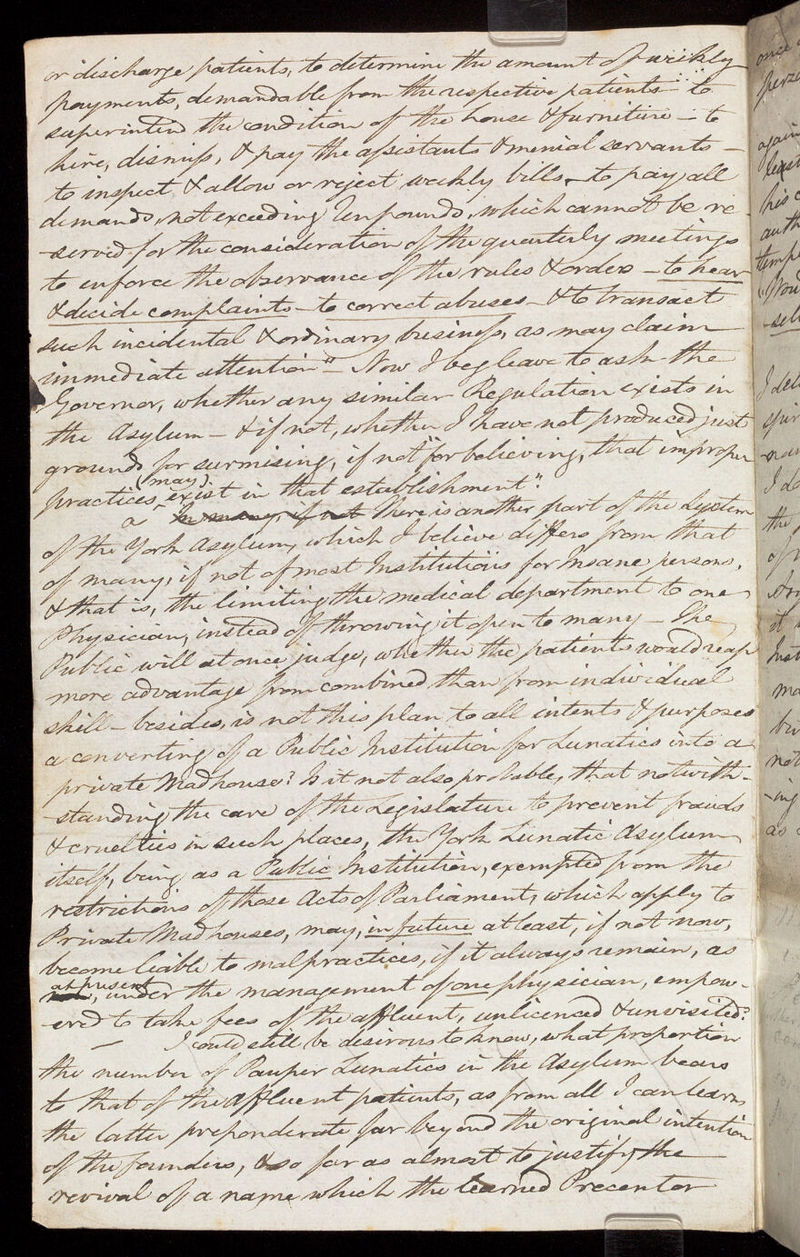 or discharge patients, to determine the amount of weekly
payments, demandable from the respective patients – to
superintend the condition of the house & furniture – to
hire, dismiss, & pay the assistants & menial servants –
to inspect & allow or reject weekly bills, – to pay all
demands, not exceeding Ten pounds, which cannot be re
-served for the consideration of the quarterly meetings
to enforce the observance of the rules & orders – to hear
& decide complaints – to correct abuses – & to transact
such incidental & ordinary business, as may claim
immediate attention" – Now I beg leave to ask the
Governor, whether any similar Regulation exists in
the Asylum – & if not, whether I have not produced just
grounds for surmising, if not for believing, that improper
(may)
practices, exist in that establishment".
a In many, if not There is another part of the System
of the York Asylum, which I believe differs from that
of many, if not of most Institutions for Insane persons,
& that is, the limiting the medical department to one
Physician, instead of throwing it open to many – The
Public will at once judge, whether the patients would reap
more advantage from combined than from individual
skill – besides, is not this plan to all intents & purposes
a converting of a Public Institution for Lunatics into a
private Madhouse? Is it not also probable, that notwith-
-standing the care of the Legislature to prevent frauds
& cruelties in such places, the York Lunatic Asylum
itself, being as a Public Institution, exempted from the
restrictions of those Acts of Parliament, which apply to
Private Madhouses, may, in future at least, if not now,
become liable to malpractices, if it always remain, as
at present
, under the management of one physician, empow-
-ered to take fees of the affluent, unlicenced & unvisited?
– I could still be desirous to know, what proportion
the number of Pauper Lunatics in the Asylum bears
to that of the affluent patients, as from all I can learn,
the latter preponderate far beyond the original intention
of the founders, & so far as almost to justify the
revival of a name which the learned Precentor